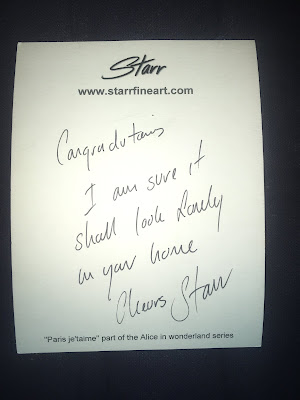 Starr
www.starrfineart.com
Congradutains
I am sure it
shall look Lovely
in your home
Cheers Starr
"Paris je'taime" part of the Alice in wonderland series